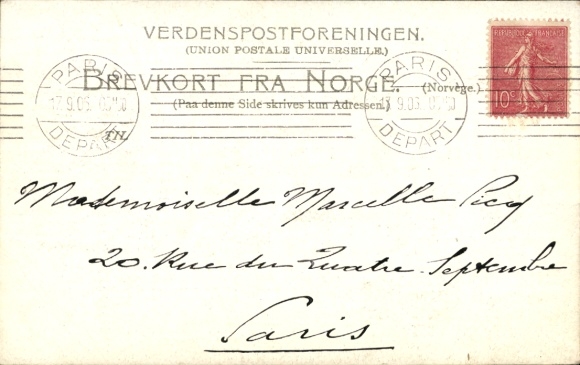 VERDENSPOSTFORENINGEN.
(UNION POSTALE UNIVERSELLE.)
BREVKORT FRA NORGE. (Norvège.)
(Paa denne Side skrives kun Adressen.)
TIL
PARIS
DEPART
PARIS
DEPART
REPUBLIQUE FRANÇAISE
10c
Mademoiselle Marcelle
20. Rue du Quatre Septembre
Paris